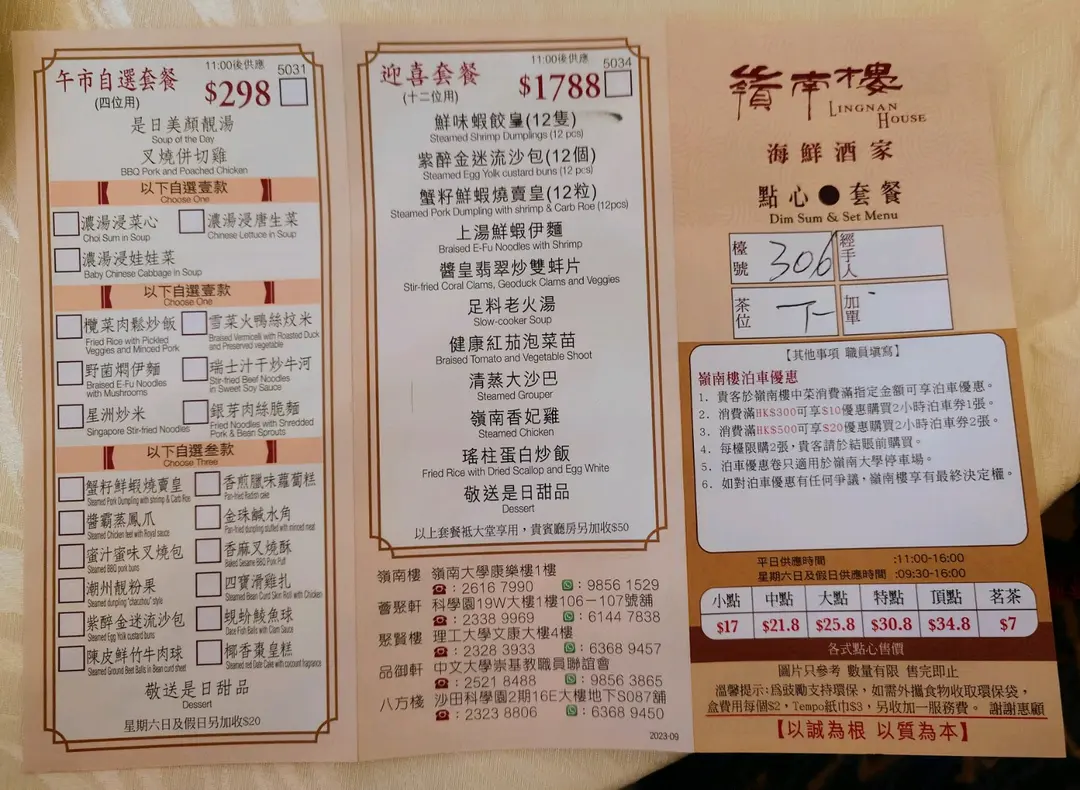 午市自選套餐
(四位用)
11:00後供應
5031
$298
是日美顏靚湯
Soup of the Day
叉燒併切雞
BBQ Pork and Poached Chicken
以下自選壹款
Choose One
濃湯浸菜心
Choi Sum in Soup
濃湯浸唐生菜
Chinese Lettuce in Soup
濃湯浸娃娃菜
Baby Chinese Cabbage in Soup
以下自選壹款
Choose One
欖菜肉鬆炒飯
Fried Rice with Pickled
Veggies and Minced Pork
雪菜火鴨絲炆米
Braised Vermicelli with Roasted Duck
and Preserved vegetable
野菌燜伊麵
Braised E-Fu Noodles
with Mushrooms
瑞士汁干炒牛河
Stir-fried Beef Noodles
in Sweet Soy Sauce
星洲炒米
Singapore Stir-fried Noodles
銀芽肉絲脆麵
Fried Noodles with Shredded
Pork & Bean Sprouts
以下自選叁款
Choose Three
蟹籽鮮蝦燒賣皇
Steamed Pork Dumpling with shrimp & Carb Roe
香煎臘味蘿蔔糕
Pan-fried Radish cake
醬霸蒸鳳爪
Steamed Chicken feet with Royal sauce
金珠鹹水角
Pan-fried dumpling stuffed with minced meat
蜜汁蜜味叉燒包
Steamed BBQ pork buns
香麻叉燒酥
Baked Sesame BBQ Pork Puff
潮州靚粉果
Steamed dumpling "chaozhou" style
四寶滑雞扎
Steamed Bean Curd Skin Roll with Chicken
紫醉金迷流沙包
Steamed Egg Yolk custard buns
蜆蚧鯪魚球
Dace Fish Balls with Clam Sauce
陳皮鮮竹牛肉球
Steamed Ground Beef Balls in Bean curd sheet
椰香棗皇糕
Steamed red Date Cake with coconut fragrance
敬送是日甜品
Dessert
星期六日及假日另加收$20
迎喜套餐
(十二位用)
11:00後供應
5034
$1788
鮮味蝦餃皇(12隻)
Steamed Shrimp Dumplings (12 pcs)
紫醉金迷流沙包(12個)
Steamed Egg Yolk custard buns (12 pcs)
蟹籽鮮蝦燒賣皇(12粒)
Steamed Pork Dumpling with shrimp & Carb Roe (12pcs)
上湯鮮蝦伊麵
Braised E-Fu Noodles with Shrimp
醬皇翡翠炒雙蚌片
Stir-fried Coral Clams, Geoduck Clams and Veggies
足料老火湯
Slow-cooker Soup
健康紅茄泡菜苗
Braised Tomato and Vegetable Shoot
清蒸大沙巴
Steamed Grouper
嶺南香妃雞
Steamed Chicken
瑤柱蛋白炒飯
Fried Rice with Dried Scallop and Egg White
敬送是日甜品
Dessert
以上套餐衹大堂享用，貴賓廳房另加收$50
嶺南樓 嶺南大學康樂樓1樓
: 2616 7990 : 9856 1529
薈聚軒 科學園19W大樓1樓106－107號舖
: 2338 9969 : 6144 7838
聚賢樓 理工大學文康大樓4樓
: 2328 3933 : 6368 9457
品御軒 中文大學崇基教職員聯誼會
: 2521 8488 : 9856 3865
八方棧 沙田科學園2期16E大樓地下S087舖
: 2323 8806 : 6368 9450
2023-09
嶺南樓
LINGNAN
HOUSE
海鮮酒家
點心●套餐
Dim Sum & Set Menu
檯號
306
經手人
茶位
下
加單
【其他事項 職員填寫】
嶺南樓泊車優惠
1. 貴客於嶺南樓中菜消費滿指定金額可享泊車優惠。
2. 消費滿HK$300可享$10優惠購買2小時泊車券1張。
3. 消費滿HK$500可享$20優惠購買2小時泊車券2張。
4. 每檯限購2張，貴客請於結賬前購買。
5. 泊車優惠卷只適用於嶺南大學停車場。
6. 如對泊車優惠有任何爭議，嶺南樓享有最終決定權。
平日供應時間 :11:00-16:00
星期六日及假日供應時間 :09:30-16:00
小點 中點 大點 特點 頂點 茗茶
$17 $21.8 $25.8 $30.8 $34.8 $7
各式點心售價
圖片只參考 數量有限 售完即止
溫馨提示:爲鼓勵支持環保，如需外攜食物收取環保袋，
盒費用每個$2，Tempo紙巾$3，另收加一服務費。 謝謝惠顧
【以誠為根 以質為本】